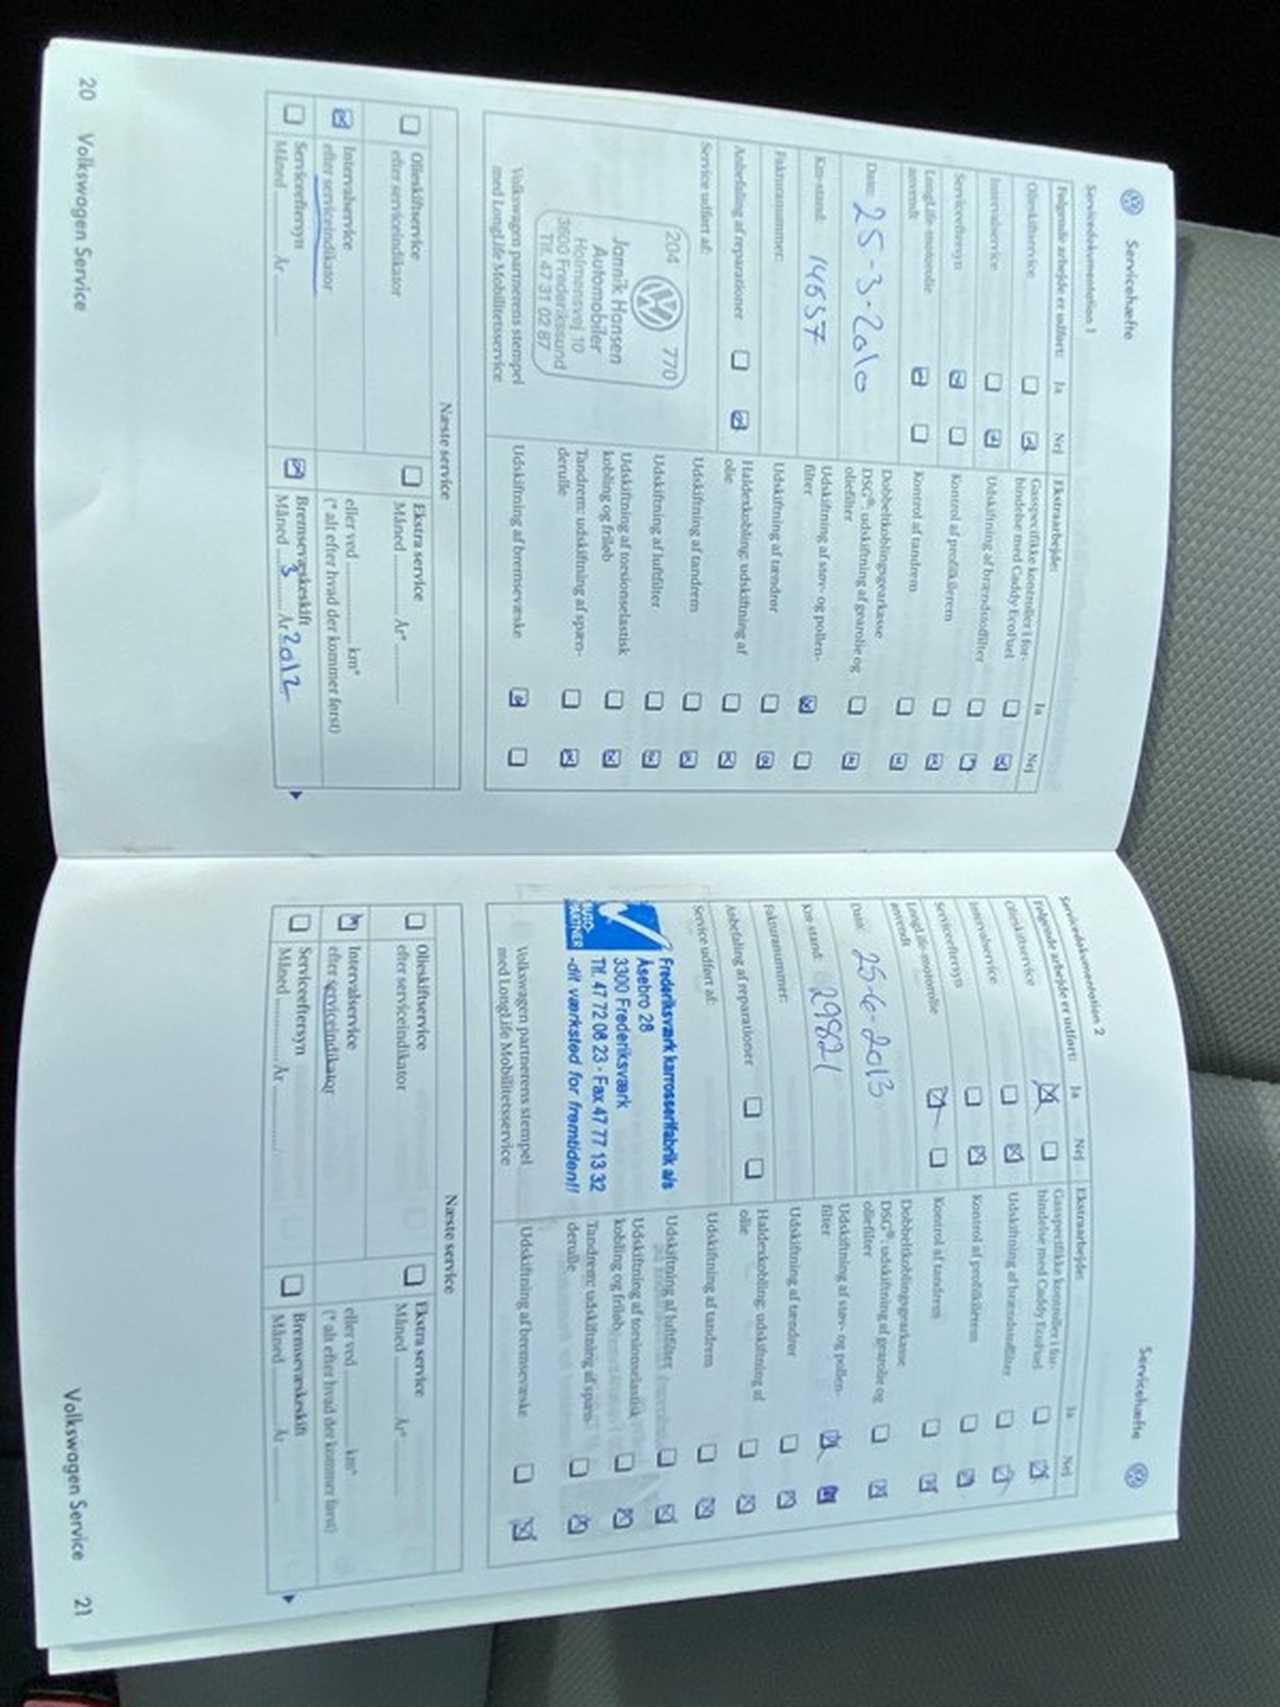 Servicehæfte
Servicedokumentation 1
Følgende arbejde er udført: Ja Nej
Olieskiftservice
Intervalservice
Serviceeftersyn
LongLife-motorolie
anvendt
Dato: 25-3-2010
Km-stand: 14657
Fakturanummer:
Anbefaling af reparationer
Service udført af:
204 770
Jannik Hansen
Automobiler
Holmensvej 10
3600 Frederikssund
Tlf. 47 31 02 87
Volkswagen partnerens stempel
med LongLife Mobilitetsservice
Ekstraarbejde: Ja Nej
Gasspecifikke kontroller i for-
bindelse med Caddy EcoFuel
Udskiftning af brændstoffilter
Kontrol af profilkilerem
Kontrol af tandrem
Dobbeltkoblingsgearkasse
DSG®: udskiftning af gearolie og
oliefilter
Udskiftning af støv- og pollen-
filter
Udskiftning af tændrør
Haldexkobling: udskiftning af
olie
Udskiftning af tandrem
Udskiftning af luftfilter
Udskiftning af torsionselastisk
kobling og friløb
Tandrem: udskiftning af spæn-
derulle
Udskiftning af bremsevæske
Næste service
Olieskiftservice
efter serviceindikator
Intervalservice
efter serviceindikator
Serviceeftersyn
Måned År
Ekstra service
Måned År*
eller ved km*
(* alt efter hvad der kommer først)
Bremsevæskeskift
Måned 3 År 2012
20 Volkswagen Service
Servicehæfte
Servicedokumentation 2
Følgende arbejde er udført: Ja Nej
Olieskiftservice
Intervalservice
Serviceeftersyn
LongLife-motorolie
anvendt
Dato: 25-6-2013
Km-stand: 29821
Fakturanummer:
Anbefaling af reparationer
Service udført af:
AUTO-
PARTNER
Frederiksværk karrosserifabrik a/s
Åsebro 28
3300 Frederiksværk
Tlf. 47 72 08 23 - Fax 47 77 13 32
-dit værksted for fremtiden!!
Volkswagen partnerens stempel
med LongLife Mobilitetsservice
Ekstraarbejde: Ja Nej
Gasspecifikke kontroller i for-
bindelse med Caddy EcoFuel
Udskiftning af brændstoffilter
Kontrol af profilkilerem
Kontrol af tandrem
Dobbeltkoblingsgearkasse
DSG®: udskiftning af gearolie og
oliefilter
Udskiftning af støv- og pollen-
filter
Udskiftning af tændrør
Haldexkobling: udskiftning af
olie
Udskiftning af tandrem
Udskiftning af luftfilter
Udskiftning af torsionselastisk
kobling og friløb
Tandrem: udskiftning af spæn-
derulle
Udskiftning af bremsevæske
Næste service
Olieskiftservice
efter serviceindikator
Intervalservice
efter serviceindikator
Serviceeftersyn
Måned År
Ekstra service
Måned År*
eller ved km*
(* alt efter hvad der kommer først)
Bremsevæskeskift
Måned År
Volkswagen Service 21